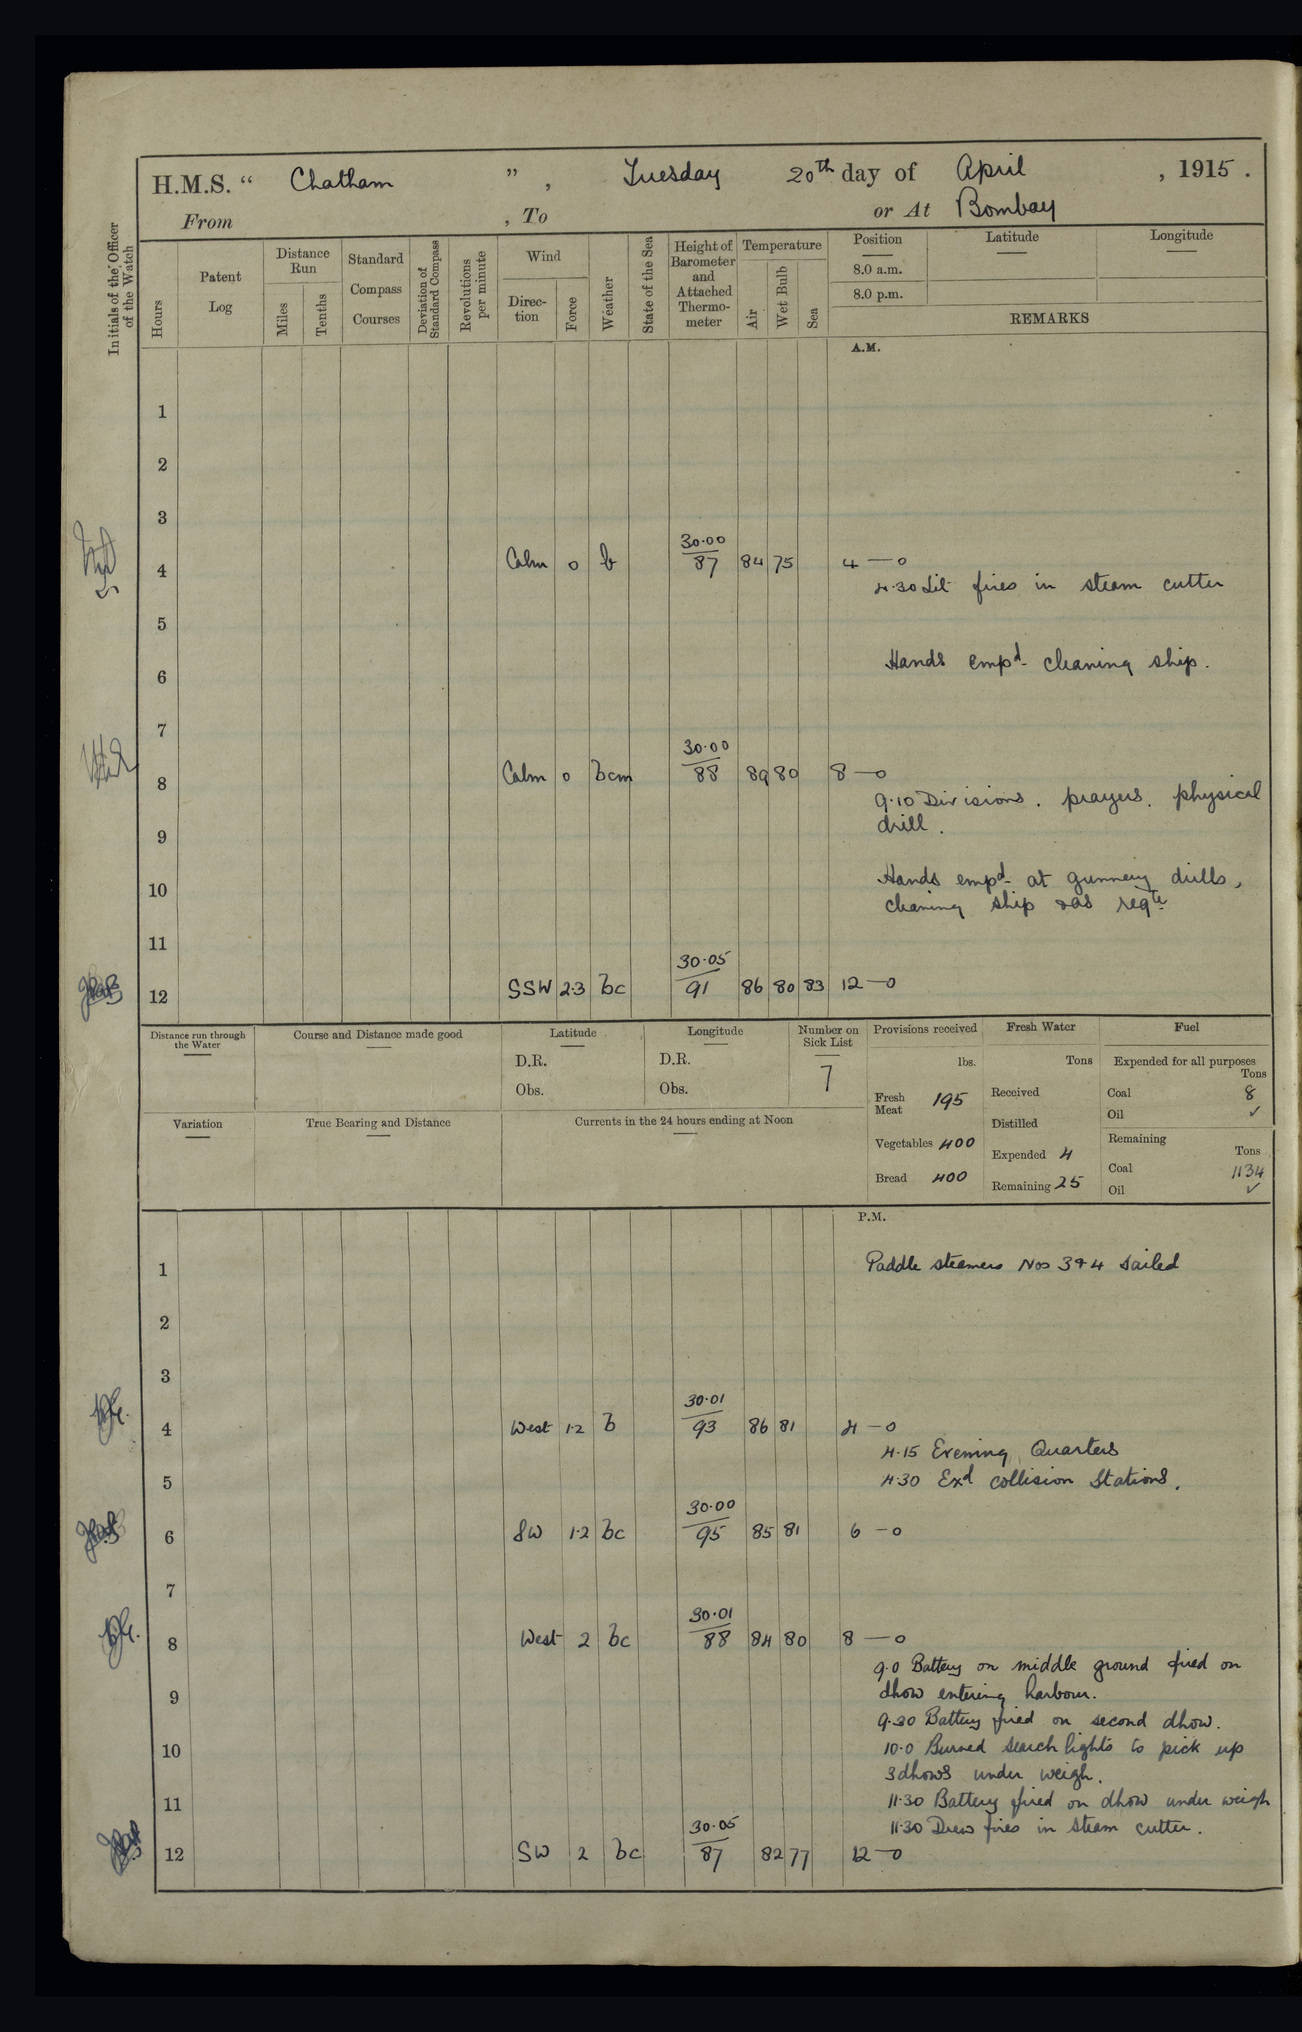 H.M.S. “ Chatham ” , Tuesday 20th day of April , 1915 .
From , To or At Bombay
Initials of the Officer of the Watch
Hours
Patent Log
Distance Run
Miles
Tenths
Standard Compass Courses
Deviation of Standard Compass
Revolutions per minute
Wind
Direc-tion
Force
Weather
State of the Sea
Height of Barometer and Attached Thermo-meter
Temperature
Air
Wet Bulb
Sea
Position
8.0 a.m.
8.0 p.m.
Latitude
Longitude
REMARKS
A.M.
1
2
3
4 Calm 0 b 30.00/87 84 75 4 — 0
4.30 Lit fires in steam cutter
5
Hands empd cleaning ship.
6
7
8 Calm 0 bcm 30.00/88 89 80 8 — 0
9.10 Divisions. prayers. physical
drill.
9
Hands empd at gunnery drills,
10
cleaning ship & as reqte
11
12 SSW 2.3 bc 30.05/91 86 80 83 12 — 0
Distance run through the Water
Course and Distance made good
Latitude
D.R.
Obs.
Longitude
D.R.
Obs.
Number on Sick List
7
Provisions received
lbs.
Fresh Meat 195
Vegetables 400
Bread 400
Fresh Water
Tons
Received
Distilled
Expended 4
Remaining 25
Fuel
Expended for all purposes
Tons
Coal 8
Oil ✓
Remaining
Tons
Coal 1134
Oil ✓
Variation
True Bearing and Distance
Currents in the 24 hours ending at Noon
P.M.
1 Paddle steamers Nos 3 & 4 sailed
2
3
4 West 1.2 b 30.01/93 86 81 4 — 0
4.15 Evening Quarters
5 4.30 Exd collision Stations.
6 SW 1.2 bc 30.00/95 85 81 6 — 0
7
8 West 2 bc 30.01/88 84 80 8 — 0
9.0 Battery on middle ground fired on
9 dhow entering harbour.
9.30 Battery fired on second dhow.
10 10.0 Burned search lights to pick up
3 dhows under weigh.
11 11.30 Battery fired on dhow under weigh
11.30 Drew fires in steam cutter.
12 SW 2 bc 30.05/87 82 77 12 — 0